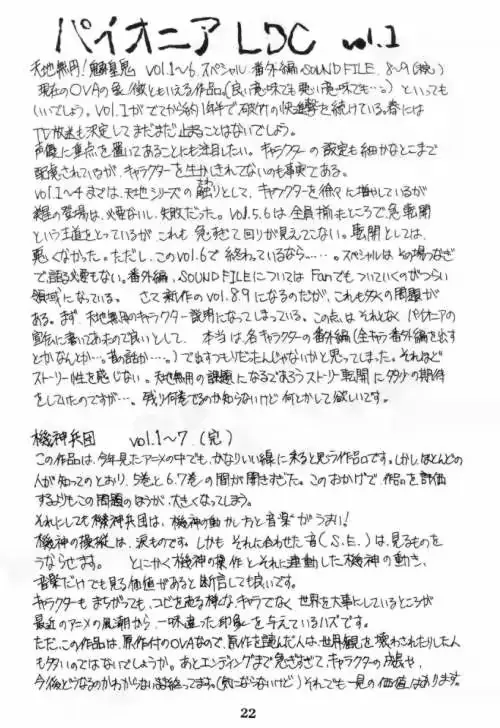 パイオニアLDC vol.1
天地無用!魎皇鬼 vol.1〜6.スペシャル.番外編 SOUND FILE.8〜9(続)
現在のOVAの象徴ともいえる作品(良い意味でも悪い意味でも…。)といっても
いいでしょう。vol.1がでてから約1年半で破竹の快進撃を続けている。春には
TV放送も決定してまだまだ止まることはないでしょう。
声優に重点を置いてあることにも注目したい。キャラクターの設定も細かなとこまで
配慮されているが、キャラクターを生かしきれてないのも事実である。
vol.1〜4までは、天地シリーズの触りとして、キャラクターを徐々に増やしているが
の登場は、必要ないし、失敗だった。vol.5.6は全員揃ったところで急展開
という王道をとっているが これも急ぎすぎて回りが見えてこない。展開としては、
悪くなかった。ただし、このvol.6で終わっているなら……。スペシャルは その場つなぎ
で、語る必要もない。番外編、SOUND FILEについては Fanでもついていくのがつらい
領域になっている。 さて新作のvol.8.9になるのだが、これも多くの問題が
ある。まず 天地無用のキャラクター説明になってしまっている。この点は、それとなく パイオニアの
宣伝に書いてあたもので良いとして、 本当は、各キャラクターの番外編(全キャラ番外編を出す
とかなんとか…。昔の話か…。)で出すつもりだったんじゃないかと思ってしまった。それほど
ストーリー性を感じない。天地無用の課題になるであろうストーリー展開に多少の期待
をしていたのですが…。残り何巻でるのか知らないけど 何とかして欲しいです。
機神兵団 vol.1〜7.(完)
この作品は、今年見たアニメの中でも、かなりいい線に来ると思う作品です。しかし、ほとんどの
人が知ってのとおり、5巻と6.7巻の間が開きすぎた。このおかげで、作品を評価
するよりもこの問題のほうが、大きくなってしまう。
それにしても機神兵団は、機神の動かし方と音楽がうまい!
機神の操縦は、凄いものです。しかも それに合わせた音(S.E.)は、見るものを
うならせます。 とにかく機神の操作とそれと連動した機神の動き、
音楽だけでも見る価値があると断言しても良いです。
キャラクターも まちがっても、コビを売る様な、キャラでなく 世界を大事にしているところが
最近のアニメの風潮から、一味違った印象を与えているハズです。
ただ、この作品は、原作付のOVAなので、原作を読んだ人は、世界観を壊わされたりした人
も多いのではないでしょうか。あとエンディングまで急ぎすぎて、キャラクターの成長や、
今後どうなるのかわからないまま終ってます。(気にならないけど)それでも一見の価値はあります。
22